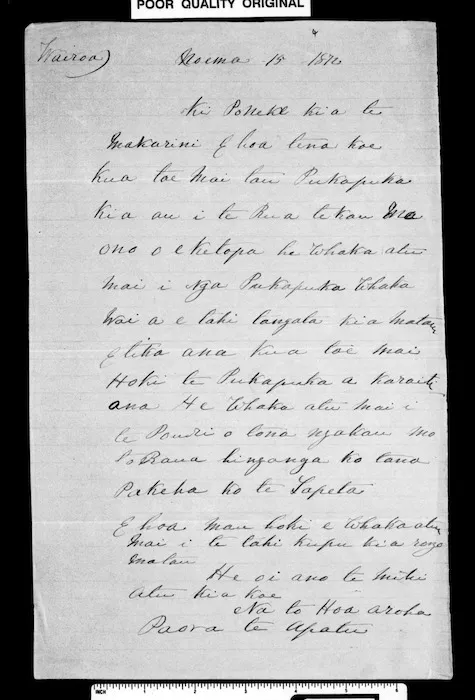 POOR QUALITY ORIGINAL
Wairoa Noema 15 1870
Ki Poneke kia te
Makarini E hoa tena koe
kua tae mai tau Pukapuka
kia au i te Rua tekau Ma
ono o eketopa he Whaka atu
mai i Nga Pukapuka Whaka
Wai a e tahi tangata kia matau
E tika ana kua tae mai
Hoki te Pukapuka a karaiti
ana He Whaka atu mai i
te Pouri o tona ngakau mo
to Raua hinganga ko tana
Pakeha ko te Tapeta
E hoa mau hoki e Whakaatu
mai i te tahi kupu kia rongo
matau
He oi ano te mihi
atu kia koe
Na to Hoa aroha
Paora te Apatu
INCH 1 2 3 4